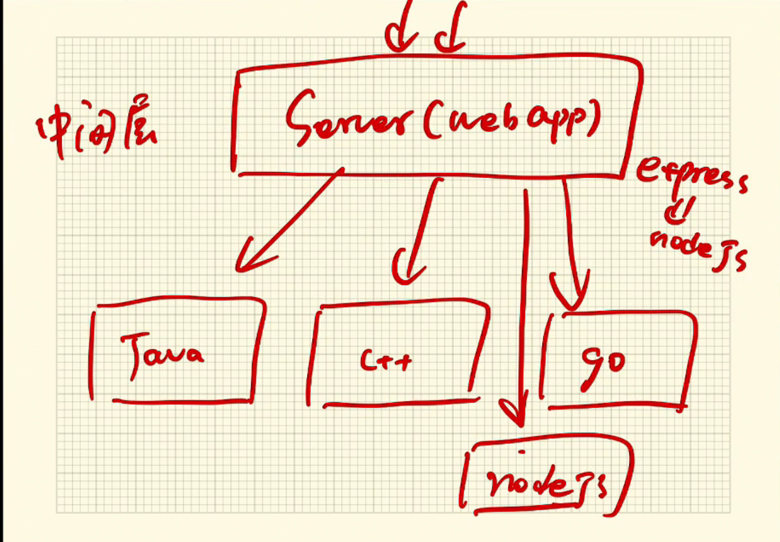 Server(web app)
中间层
express
nodeJs
Java
C++
go
nodeJs